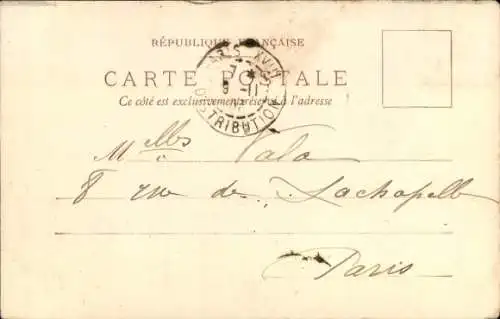 RÉPUBLIQUE FRANÇAISE
CARTE POSTALE
Ce côté est exclusivement réservé à l'adresse
PARIS XVIII
7
8 - 11
DISTRIBUTION
Melles Vala
8 rue de Lachapelle
Paris